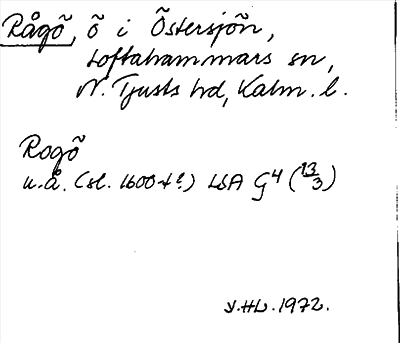 Rågö, ö i Östersjön,
Loftahammars sn,
N. Tjusts hd, Kalm. l.
Rogö
u.å. (sl. 1600-t.) LSA G4 (13/3)
V.HL. 1972.